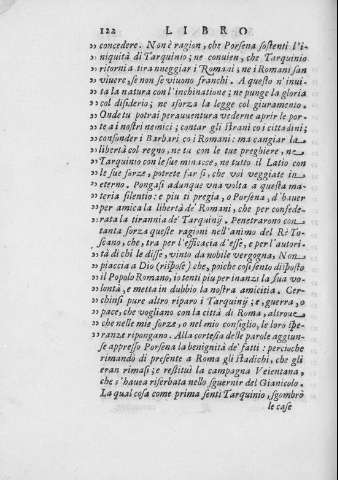 122 LIBRO
,, concedere. Non è ragion, che Porsena sostenti l'i-
,, niquità di Tarquinio; ne conuien, che Tarquinio
,, ritorni a tiranneggiar i Romani; ne i Romani san
,, viuere, se non se viuono franchi. A questo n'inui-
,, ta la natura con l'inchinatione; ne punge la gloria
,, col disiderio; ne sforza la legge col giuramento.
,, Onde tu potrai perauuentura vederne aprir le por-
,, te a i nostri nemici; contar gli strani co i cittadini;
,, confonder i Barbari co i Romani: ma cangiar la
,, libertà col regno, ne tu con le tue preghiere, ne
,, Tarquinio con le sue minacce, ne tutto il Latio con
,, le sue forze, potrete far sì, che voi veggiate in
,, eterno. Pongasi adunque vna volta a questa ma-
,, teria silentio: e piu ti pregia, o Porsena, d'hauer
,, per amica la libertà de' Romani, che per confede-
,, rata la tirannia de' Tarquinij. Penetrarono con
,, tanta forza queste ragioni nell'animo del Rè To-
,, scano, che, tra per l'efficacia d'esse, e per l'autori-
,, tà di chi le disse, vinto da nobile vergogna, Non
,, piaccia a Dio (rispose) che, poiche così sento disposto
,, il Popolo Romano, io tenti piu per inanzi la sua vo-
,, lontà, e metta in dubbio la nostra amicitia. Cer-
,, chinsi pure altro riparo i Tarquinij; e, guerra, o
,, pace, che vogliano con la città di Roma, altroue
,, che nelle mie forze, o nel mio consiglio, le loro spe-
,, ranze ripongano. Alla cortesia delle parole aggiun-
se appresso Porsena la benignità de' fatti: percioche
rimandò di presente a Roma gli stadichi, che gli
eran rimasi; e restituì la campagna Veientana,
che s'hauea riserbata nello sguernir del Gianicolo.
La qual cosa come prima sentì Tarquinio, sgombrò
le case